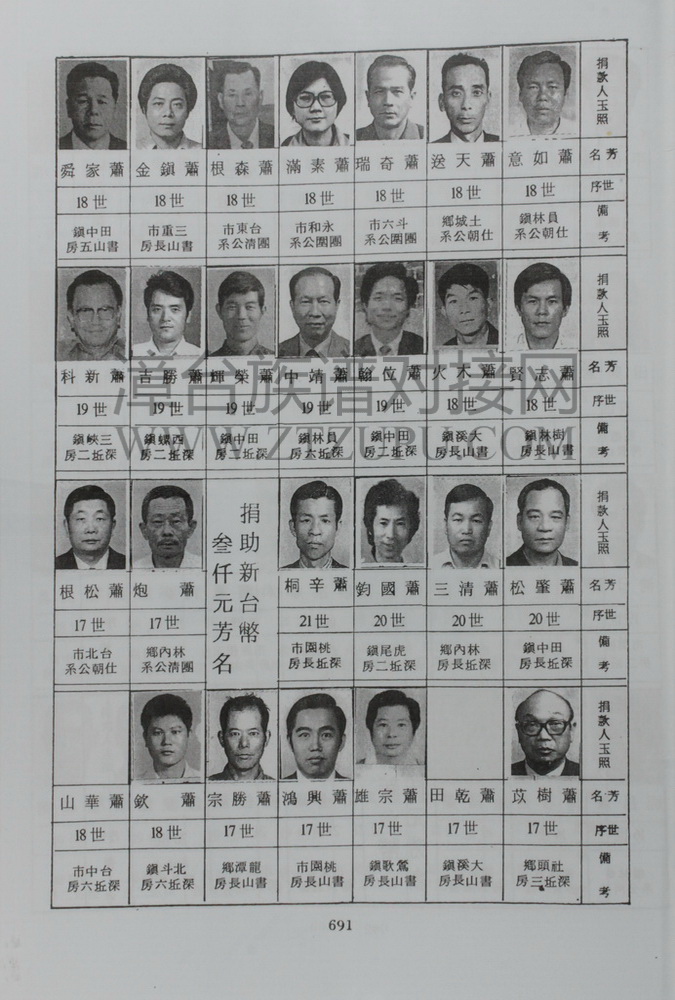 捐款人玉照
芳名 蕭如意 蕭天送 蕭奇瑞 蕭素滿 蕭森根 蕭鎮金 蕭家舜
世序 18世 18世 18世 18世 18世 18世 18世
備考 員林鎮 土城鄉 斗六市 永和市 台東市 三重市 田中鎮
仕朝公系 仕朝公系 團圓公系 團圓公系 團清公系 書山長房 書山五房
捐款人玉照
芳名 蕭志賢 蕭木火 蕭位翰 蕭靖中 蕭榮輝 蕭勝吉 蕭新科
世序 18世 18世 19世 19世 19世 19世 19世
備考 樹林鎮 大溪鎮 田中鎮 員林鎮 田中鎮 西螺鎮 三峽鎮
書山長房 書山長房 深坵二房 深坵六房 深坵二房 深坵二房 深坵二房
捐款人玉照
芳名 蕭肇松 蕭清三 蕭國鈞 蕭辛桐
世序 20世 20世 20世 21世
備考 田中鎮 林內鄉 虎尾鎮 桃園市
深坵長房 深坵長房 深坵二房 深坵長房
捐助新台幣
叁仟元芳名
蕭炮 蕭松根
17世 17世
林內鄉 台北市
團清公系 仕朝公系
捐款人玉照
芳名 蕭樹苡 蕭乾田 蕭宗雄 蕭興鴻 蕭勝宗 蕭欽 蕭華山
世序 17世 17世 17世 17世 17世 18世 18世
備考 社頭鄉 大溪鎮 鶯歌鎮 桃園市 龍潭鄉 北斗鎮 台中市
深坵三房 書山長房 書山長房 書山長房 書山長房 深坵六房 深坵六房
691
漳台族谱对接网
WWW.ZTZUPU.COM